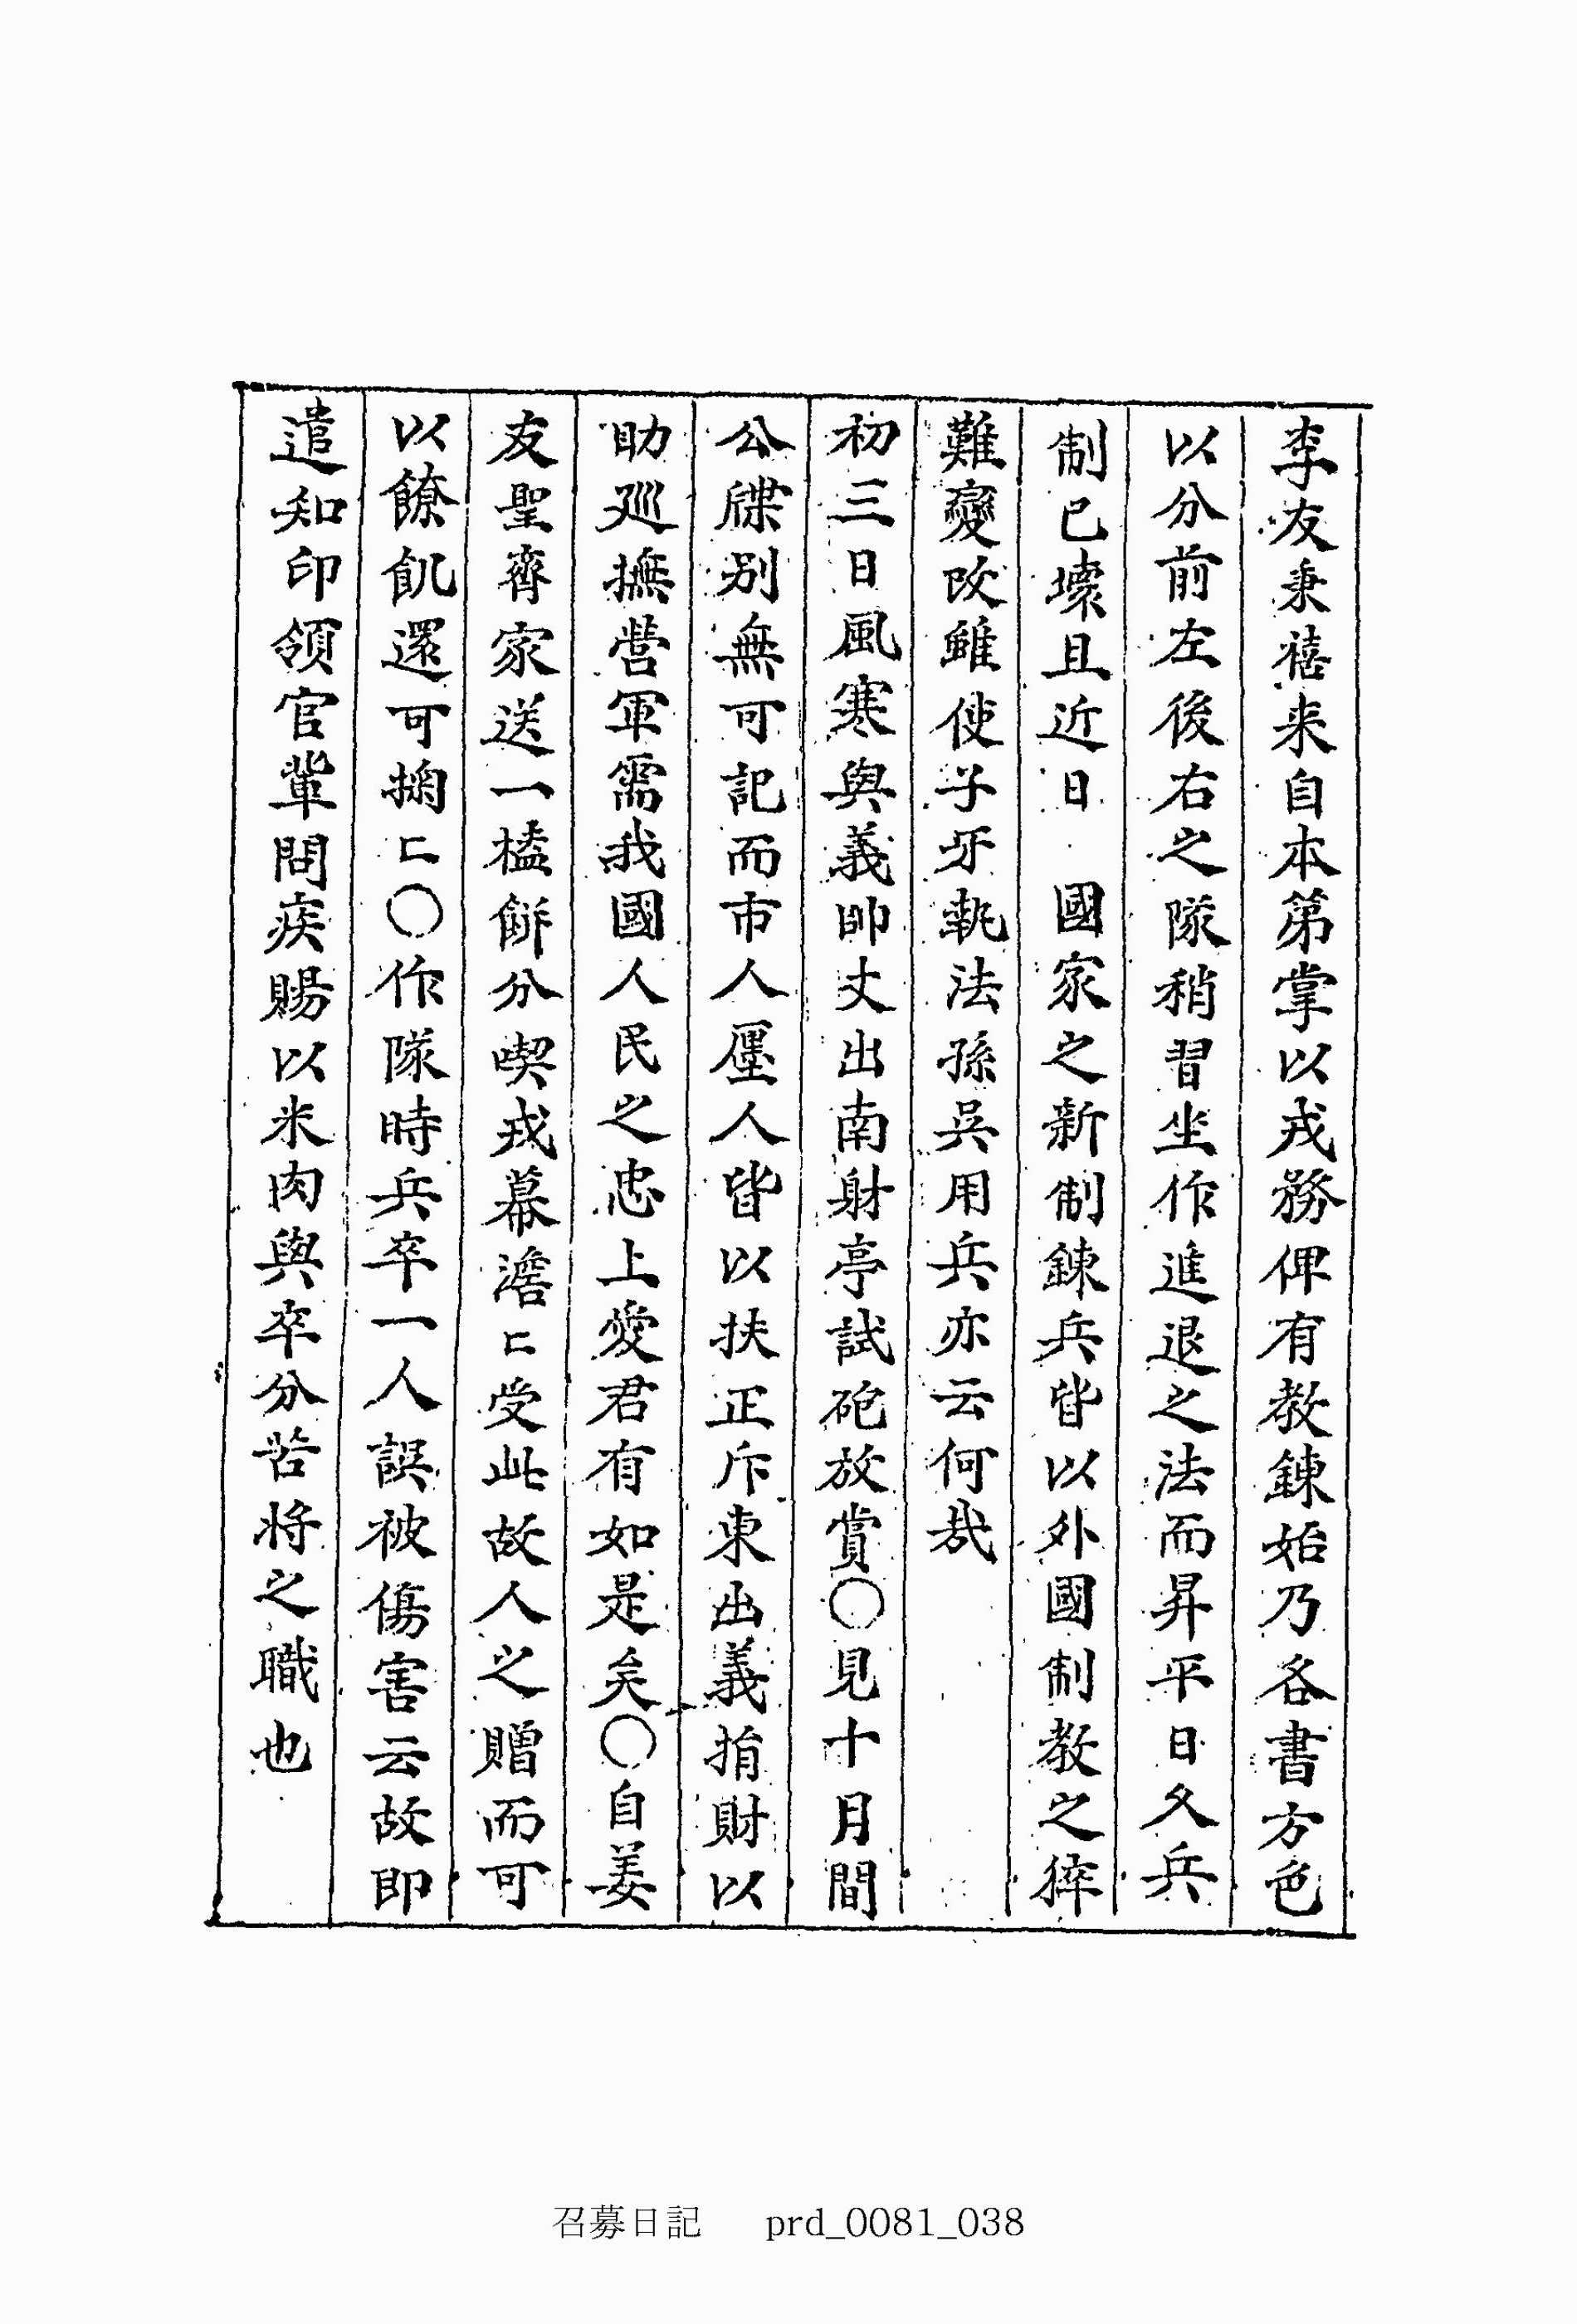 李友秉禧来自本第掌以戎務俾有教鍊始乃各書方色
以分前左後右之隊稍習坐作進退之法而昇平日久兵
制已壞且近日 國家之新制鍊兵皆以外國制教之猝
難變改雖使子牙執法孫吳用兵亦云何㢤
初三日風寒與義帥丈出南射亭試砲放賞○見十月間
公牒别無可記而市人廛人皆以扶正斥東出義捐財以
助廵撫營軍需我國人民之忠上愛君有如是矣○自姜
友聖齊家送一榼餠分喫戎幕澹〻受此故人之贈而可
以療飢還可掬〻○作隊時兵卒一人誤被傷害云故即
遣知印領官軰問疾賜以米肉與卒分苦将之職也
召募日記 prd_0081_038